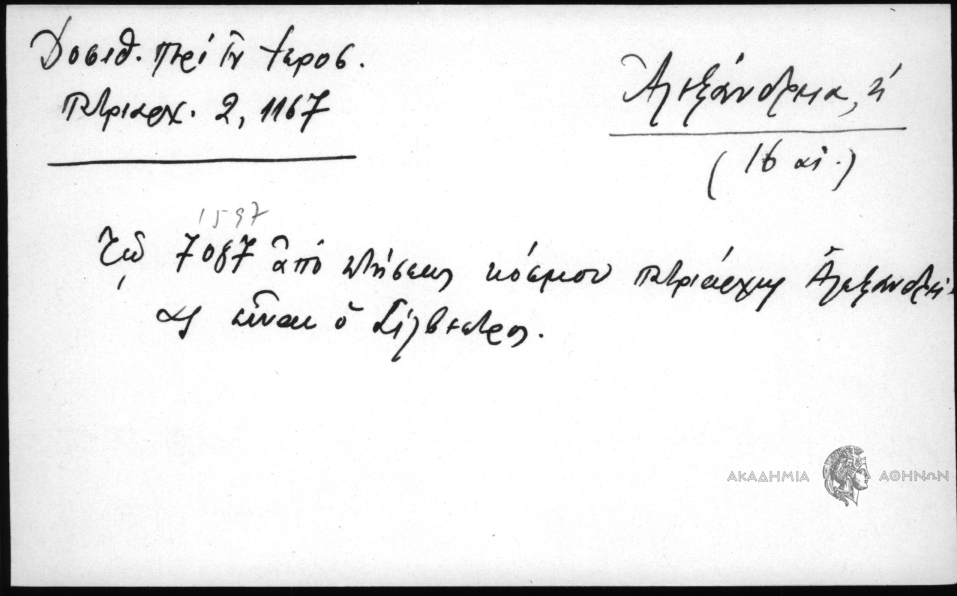 Δοσιθ. περί τῶν Ἱεροσ.
Πατριαρχ. 2, 1167
Ἀλεξάνδρεια, ἡ
(16 αἰ.)
1597
Τῷ 7087 ἀπό κτήσεως κόσμου πατριάρχης Ἀλεξανδρεί-
ας εἶναι ὁ Σίλβεστρος.
ΑΚΑΔΗΜΙΑ ΑΘΗΝΩΝ